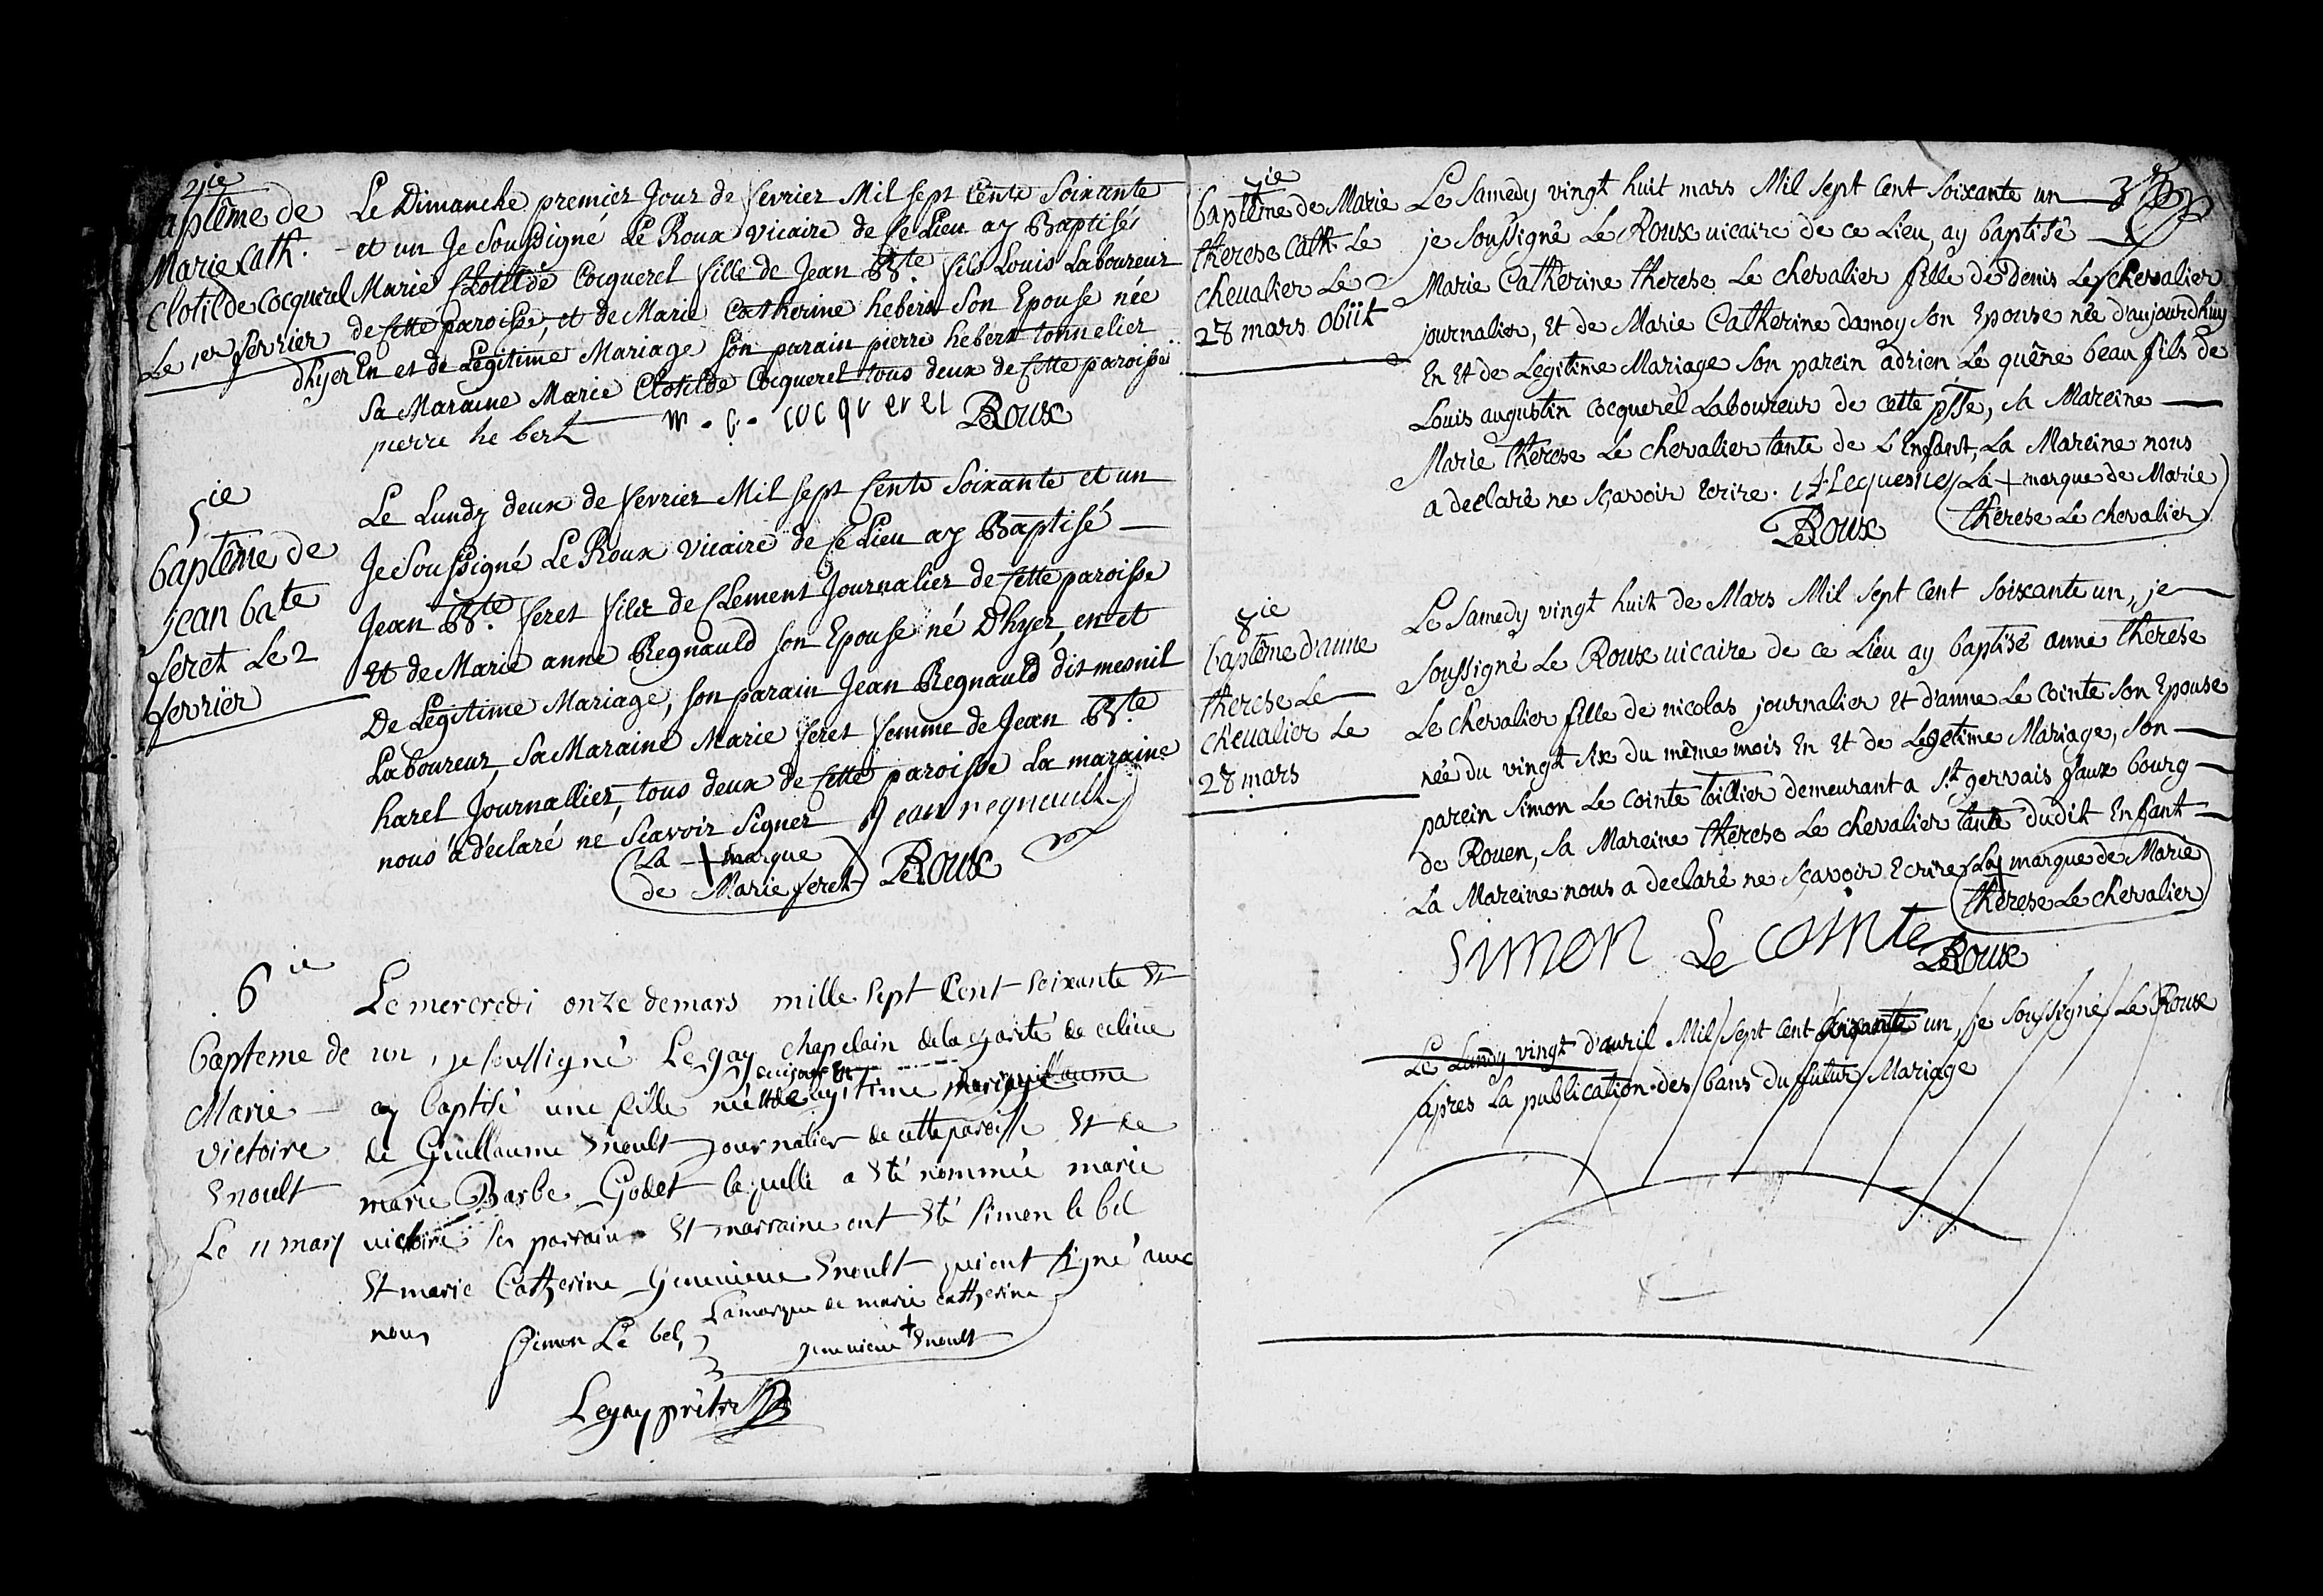 4ie
baptême de
Marie Cath.
Clotilde Cocquerel
Le 1er fevrier
Le Dimanche premier Jour de fevrier Mil sept Cents Soixante
et un Je Soussigné Le Roux vicaire de ce Lieu ay Baptisés
Marie Clotilde Cocquerel fille de Jean Bte. fils Louis Laboureur
de cette paroisse, et de Marie Catherine hebert Son Epouse née
d'hyer En et de Legitime Mariage son parain pierre hebert tonnelier
Sa Maraine Marie Clotilde Cocquerel tous deux de cette paroisse
pierre hebert m. c. cocqverel LeRoux
5ie
baptême de
jean bate
feret Le 2
fevrier
Le Lundy deux de fevrier Mil sept Cents Soixante et un
Je Soussigné Le Roux vicaire de ce Lieu ay Baptisé
Jean Bte. feret fils de Clement Journalier de cette paroisse
et de Marie anne Regnauld son Epouse né D'hyer en et
De Legitime Mariage, son parain Jean Regnauld dit mesnil
Laboureur, Sa Maraine Marie feret femme de Jean Bte
harel Journallier, tous deux de cette paroisse La maraine
nous a déclaré ne Scavoir Signer Jean regnauld
La + marque
de Marie feret LeRoux
6ie
bapteme de
Marie
victoire
Enoult
Le 11 mars
Le mercredi onze de mars mille sept Cent soixante Et
un, je soussigné Legay chapelain de la charité de ce lieu
ay baptisé une fille née aujour En et de legitime mariage
de Guillaume Enoult journalier de cette paroisse Et de
marie Barbe Godet laquelle a Eté nommée marie
victoire ses parrain Et marraine ont Eté simon le bel
Et marie Catherine Genevieve Enoult qui ont signé avec
nous Simon Le bel La marque de marie catherine
genevieve + Enoult
Legay prêtre
7ie
baptême de Marie
therese Cath. Le
chevalier Le
28 mars obiit
Le Samedy vingt huit mars Mil sept Cent soixante un 3
je Soussigné Le Roux vicaire de ce Lieu, ay baptisé
Marie Catherine therese Le chevalier fille de Denis Le chevalier
journalier, Et de Marie Catherine damoy son Epouse née d'aujourdhuy
En Et de Legitime Mariage son parein adrien Le quêne beau fils de
Louis augustin cocquerel Laboureur de cette psse, sa Mareine
Marie therese Le chevalier tante de L'Enfant, La Mareine nous
a declaré ne sçavoir Ecrire. A Lequesne La + marque de Marie
therese Le chevalier
LeRoux
8ie
baptême d'anne
therese Le
chevalier Le
28 mars
Le Samedy vingt huit de Mars Mil sept Cent soixante un, je
soussigné Le Roux vicaire de ce Lieu ay baptisé anne therese
Le chevalier fille de nicolas journalier Et d'anne Le Cointe son Epouse
née du vingt six du même mois En Et de Legetime Mariage, son
parein Simon Le Cointe toillier demeurant a St. gervais faux bourg
de Rouen, sa Mareine therese Le chevalier tante dudit Enfant
La Mareine nous a declaré ne sçavoir Ecrire La + marque de Marie
therese Le chevalier
Simon Le cointe LeRoux
Le Lundy vingt d'avril Mil sept cent soixante un, je soussigné Le Roux
apres La publication des bans du futur Mariage